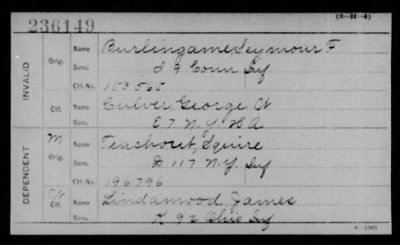 (3-H-4)
236149
INVALID
Orig. Name Burlingame, Seymour F
Serv. I 9 Conn Inf
Ctf. No. 153,565
Ctf. Name Culver, George W
Serv. E 7 N.Y. H A
DEPENDENT
M Orig. Name Teachout, Squire
Serv. D 117 N.Y. Inf
Ctf. No. 196796
Ctf. Name Lindamood, James
Serv. K 92 Ohio Inf